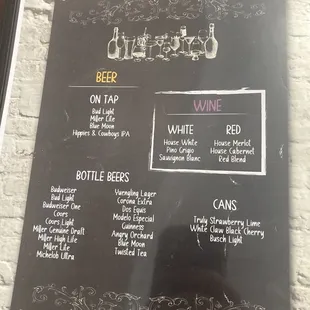 BEER
ON TAP
Bud Light
Miller Lite
Blue Moon
Hippies & Cowboys IPA
WINE
WHITE
House White
Pino Grigio
Sauvignon Blanc
RED
House Merlot
House Cabernet
Red Blend
BOTTLE BEERS
Budweiser
Bud Light
Budweiser One
Coors
Coors Light
Miller Genuine Draft
Miller High Life
Miller Lite
Michelob Ultra
Yuengling Lager
Corona Extra
Dos Equis
Modelo Especial
Guinness
Angry Orchard
Blue Moon
Twisted Tea
CANS
Truly Strawberry Lime
White Claw Black Cherry
Busch Light